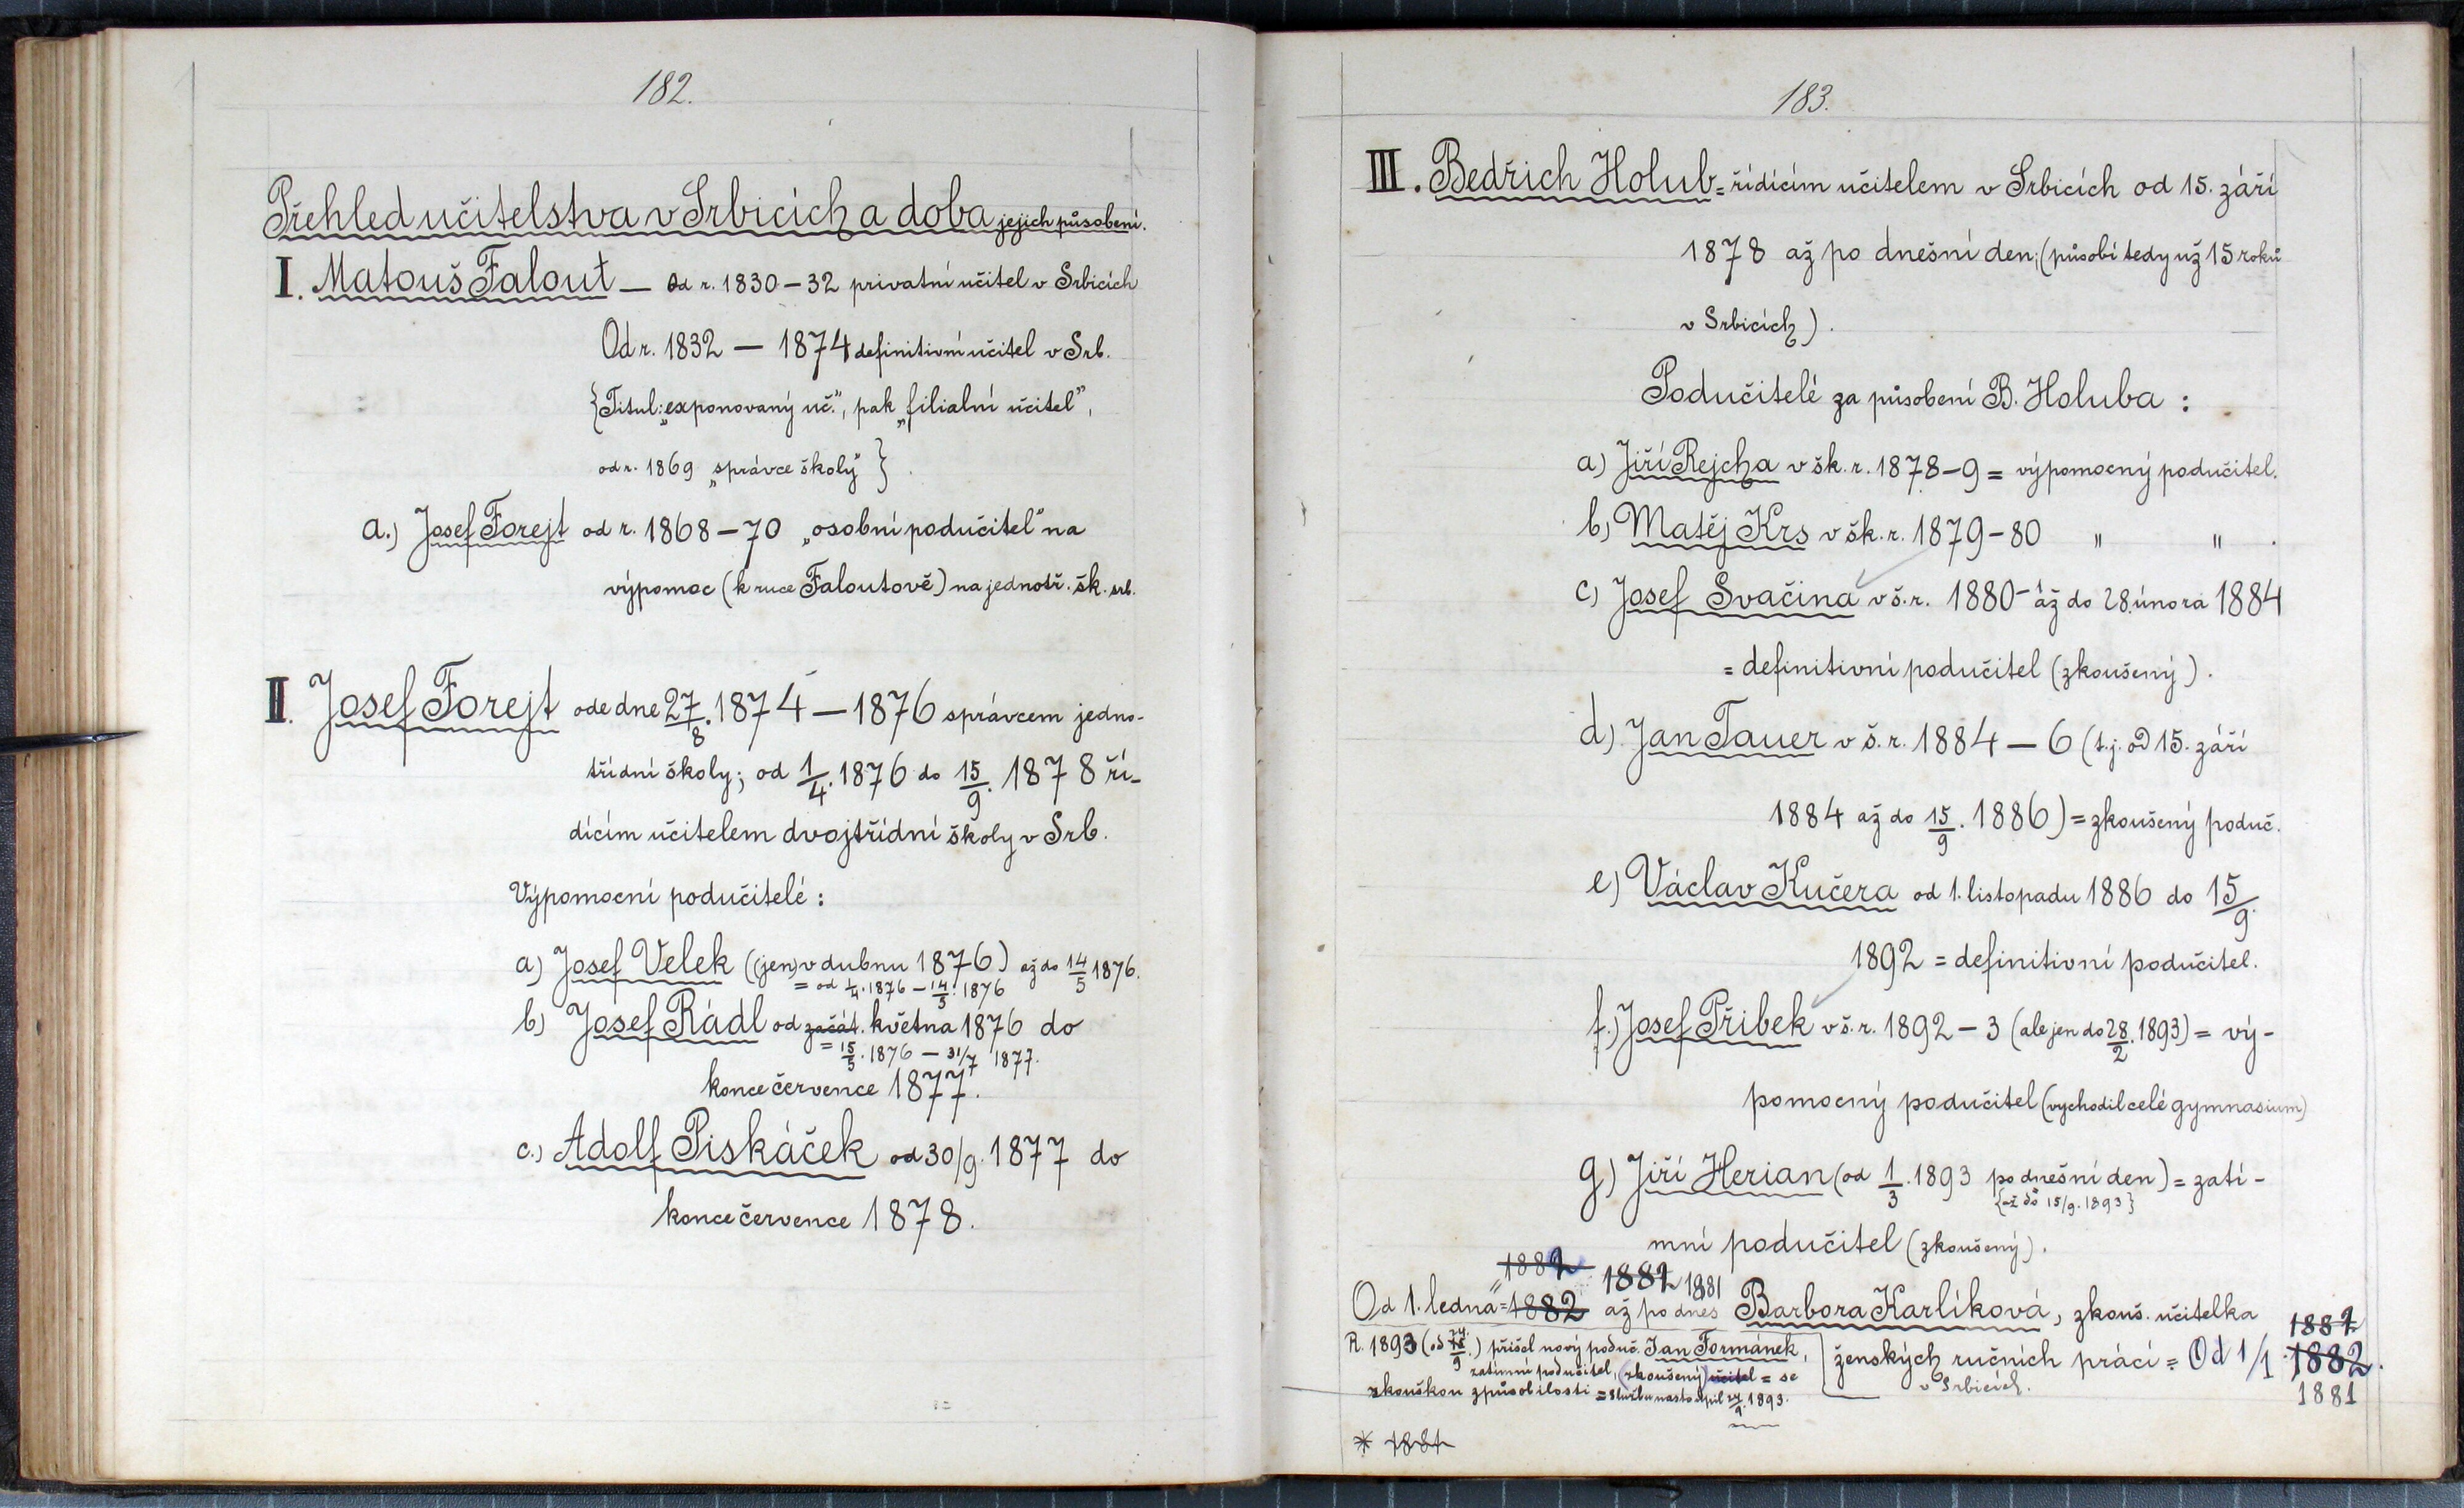 182.
Přehled učitelstva v Srbicích a doba jejich působení.
I. Matouš Falout — Od r. 1830–32 privatní učitel v Srbicích
Od r. 1832 — 1874 definitivní učitel v Srb.
{Titul: „exponovaný uč.", pak „filialní učitel",
od r. 1869 „správce školy" }.
a.) Josef Forejt od r. 1868–70 „osobní podučitel" na
výpomoc (k ruce Faloutově) na jednotř. šk. srb.
II. Josef Forejt ode dne 27/8. 1874 — 1876 správcem jedno-
třídní školy; od 1/4. 1876 do 15/9. 1878 ří-
dícím učitelem dvojtřídní školy v Srb.
Výpomocní podučitelé:
a) Josef Velek ((jen) v dubnu 1876) až do 14/5 1876.
= od 1/4. 1876 – 14/5. 1876
b) Josef Rádl od začát. května 1876 do
= 15/5. 1876 – 31/7 1877.
konce července 1877.
c.) Adolf Piskáček od 30/9. 1877 do
konce července 1878.
183.
III. Bedřich Holub = řídícím učitelem v Srbicích od 15. září
1878 až po dnešní den; (působí tedy už 15 roků
v Srbicích).
Podučitelé za působení B. Holuba:
a) Jiří Rejcha v šk. r. 1878–9 = výpomocný podučitel.
b) Matěj Krs v šk. r. 1879–80 " " .
c) Josef Svačina v š. r. 1880 – až do 28. února 1884
= definitivní podučitel (zkoušený).
d) Jan Tauer v š. r. 1884 — 6 (t. j. od 15. září
1884 až do 15/9. 1886) = zkoušený poduč.
e) Václav Kučera od 1. listopadu 1886 do 15/9.
1892 = definitivní podučitel.
f.) Josef Přibek v š. r. 1892 – 3 (ale jen do 28/2. 1893) = vý-
pomocný podučitel (vychodil celé gymnasium)
g) Jiří Herian (od 1/3. 1893 po dnešní den) = zatí-
{až do 15/9. 1893}
mní podučitel (zkoušený).
1882 1882 1881
Od 1. ledna = 1882 až po dnes Barbora Karlíková, zkouš. učitelka
1882
ženských ručních prací = Od 1/1 1882.
v Srbicích.
1881
R. 1893 (od /9.) přišel nový poduč. Jan Formánek,
zatímní podučitel, (zkoušený) učitel = se
zkouškou způsobilosti = službu nastoupil /9. 1893.
* 1881